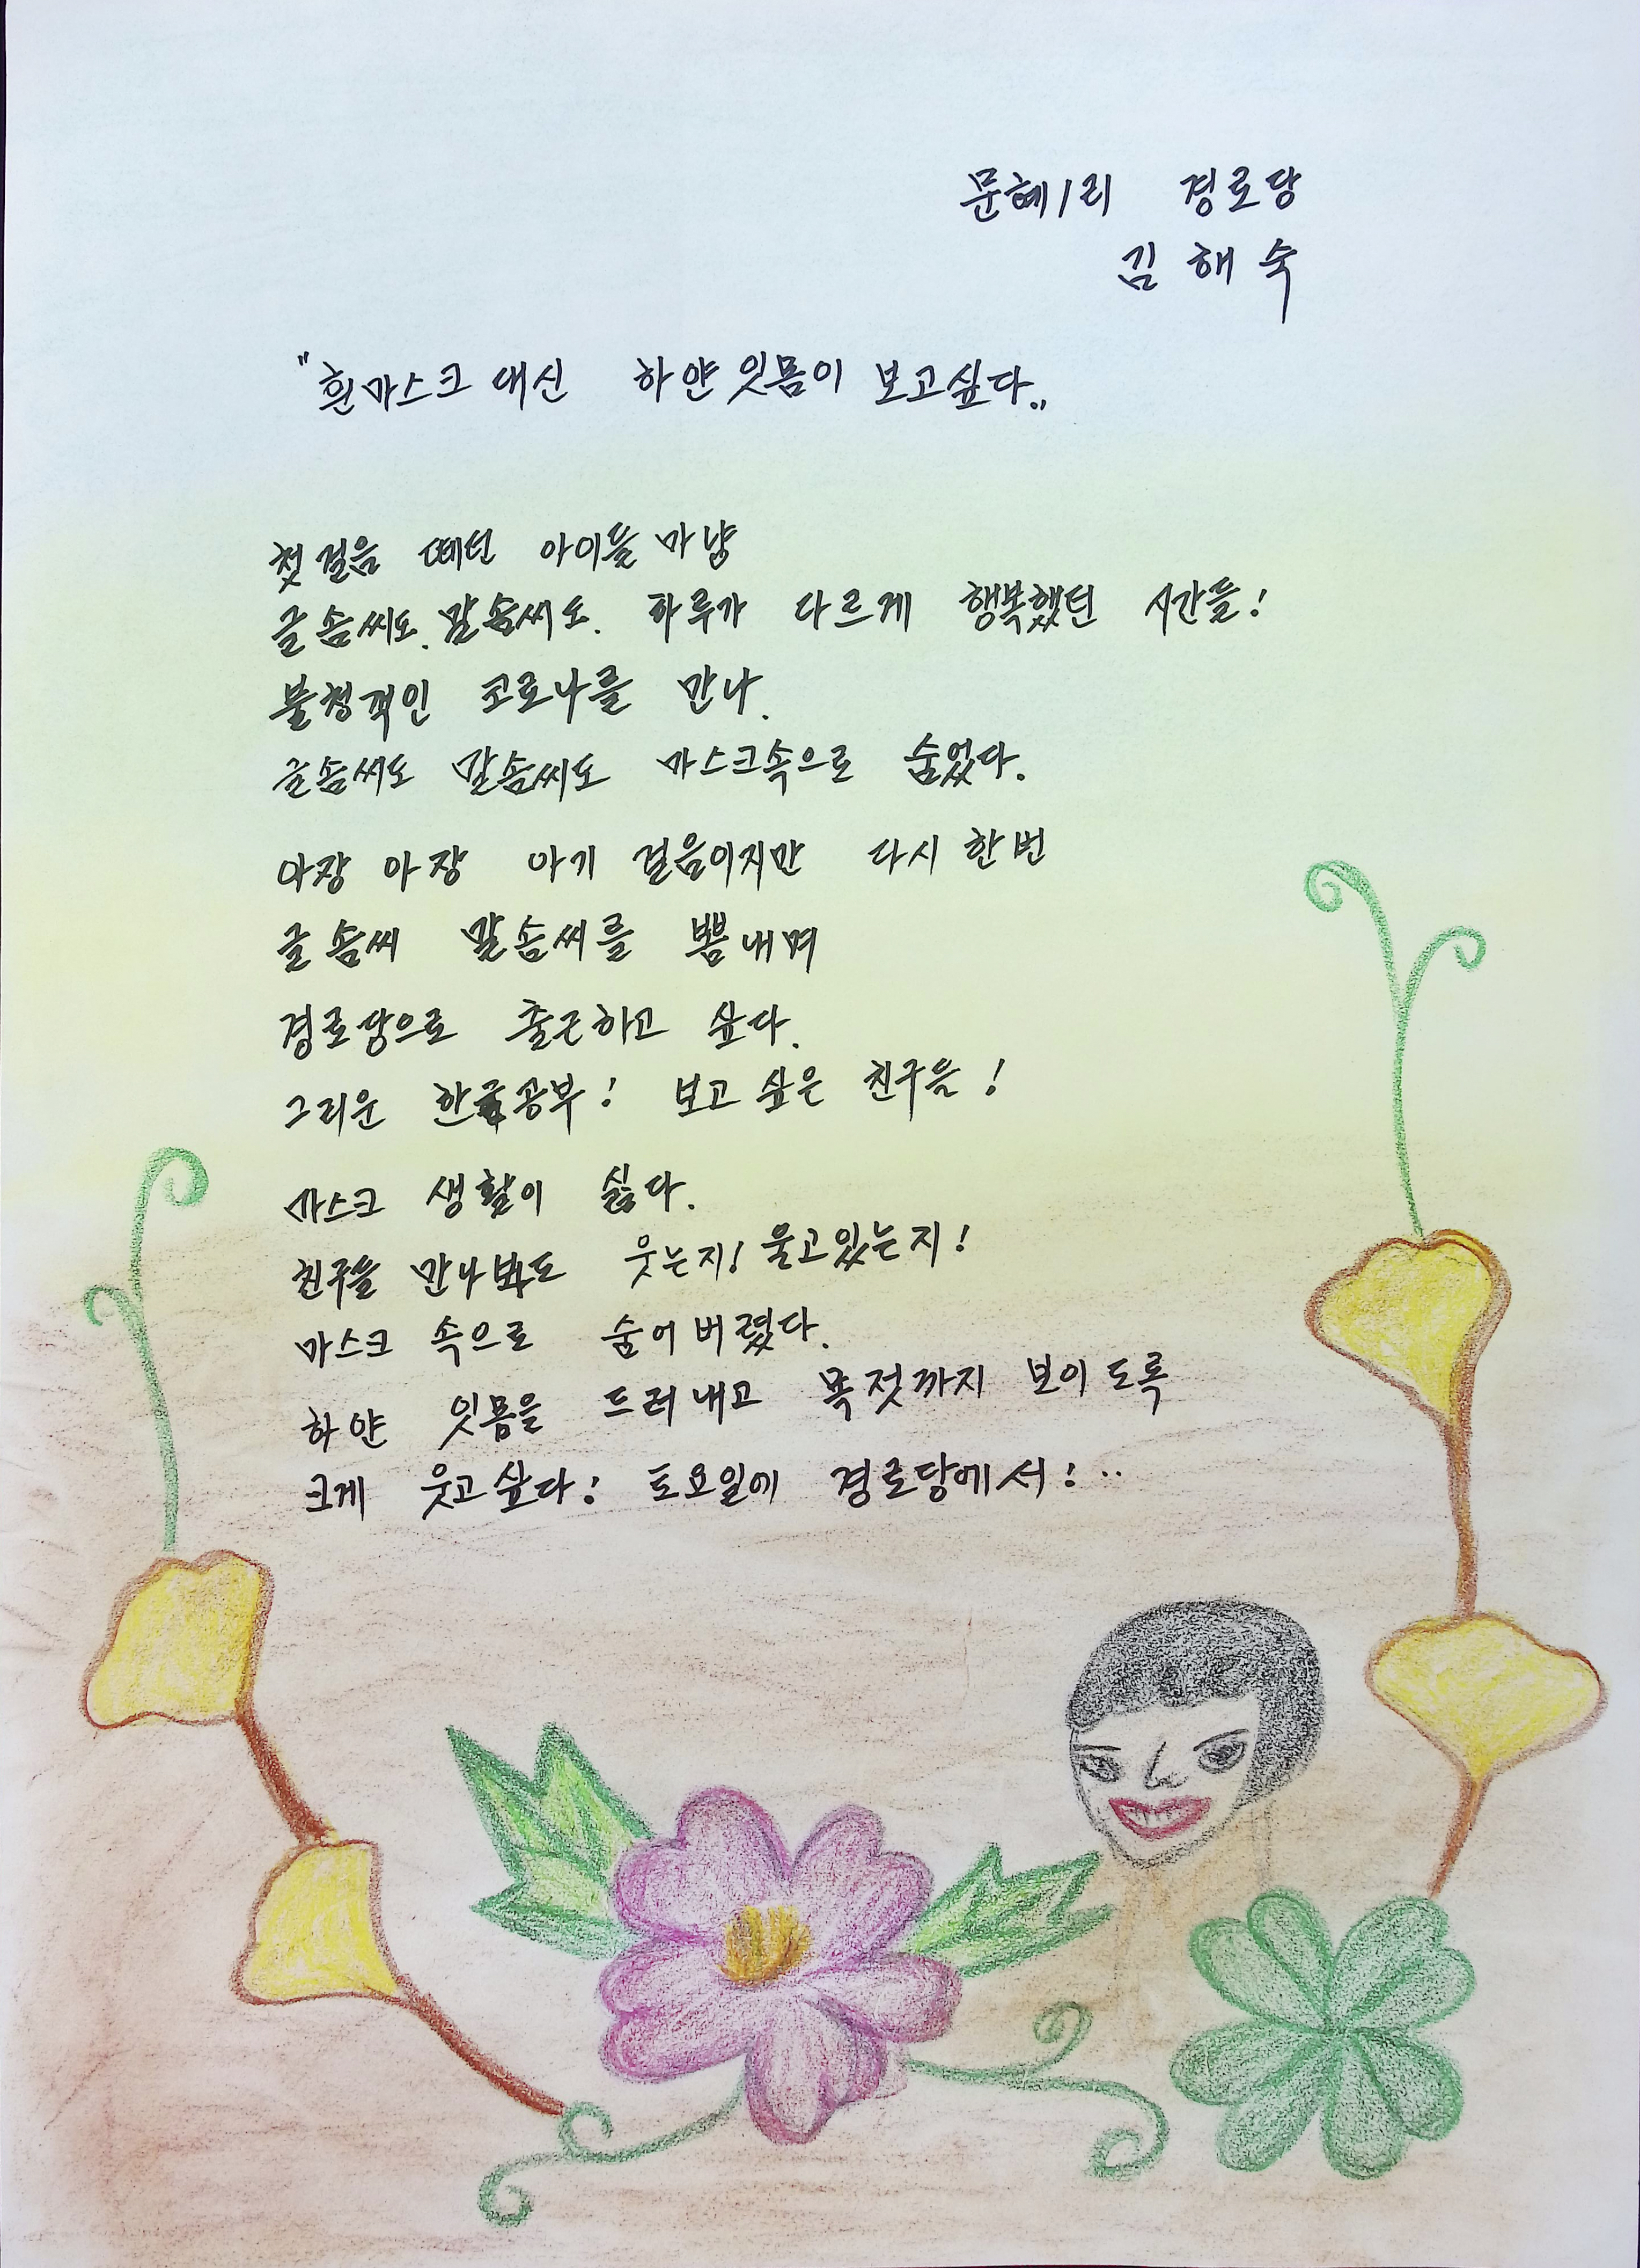 문혜1리 경로당
김해숙
"흰마스크 대신 하얀잇몸이 보고싶다"
첫걸음 떼던 아이들마냥
글솜씨도. 말솜씨도. 하루가 다르게 행복했던 시간들!
불청객인 코로나를 만나.
글솜씨도 말솜씨도 마스크속으로 숨었다.
아장 아장 아기 걸음이지만 다시한번
글솜씨 말솜씨를 뽐내며
경로당으로 출근하고 싶다.
그리운 한글공부! 보고싶은 친구들!
마스크 생활이 싫다.
친구들 만나봐도 웃는지! 울고있는지!
마스크 속으로 숨어버렸다.
하얀 잇몸을 드러내고 목젖까지 보이도록
크게 웃고싶다! 토요일에 경로당에서!..